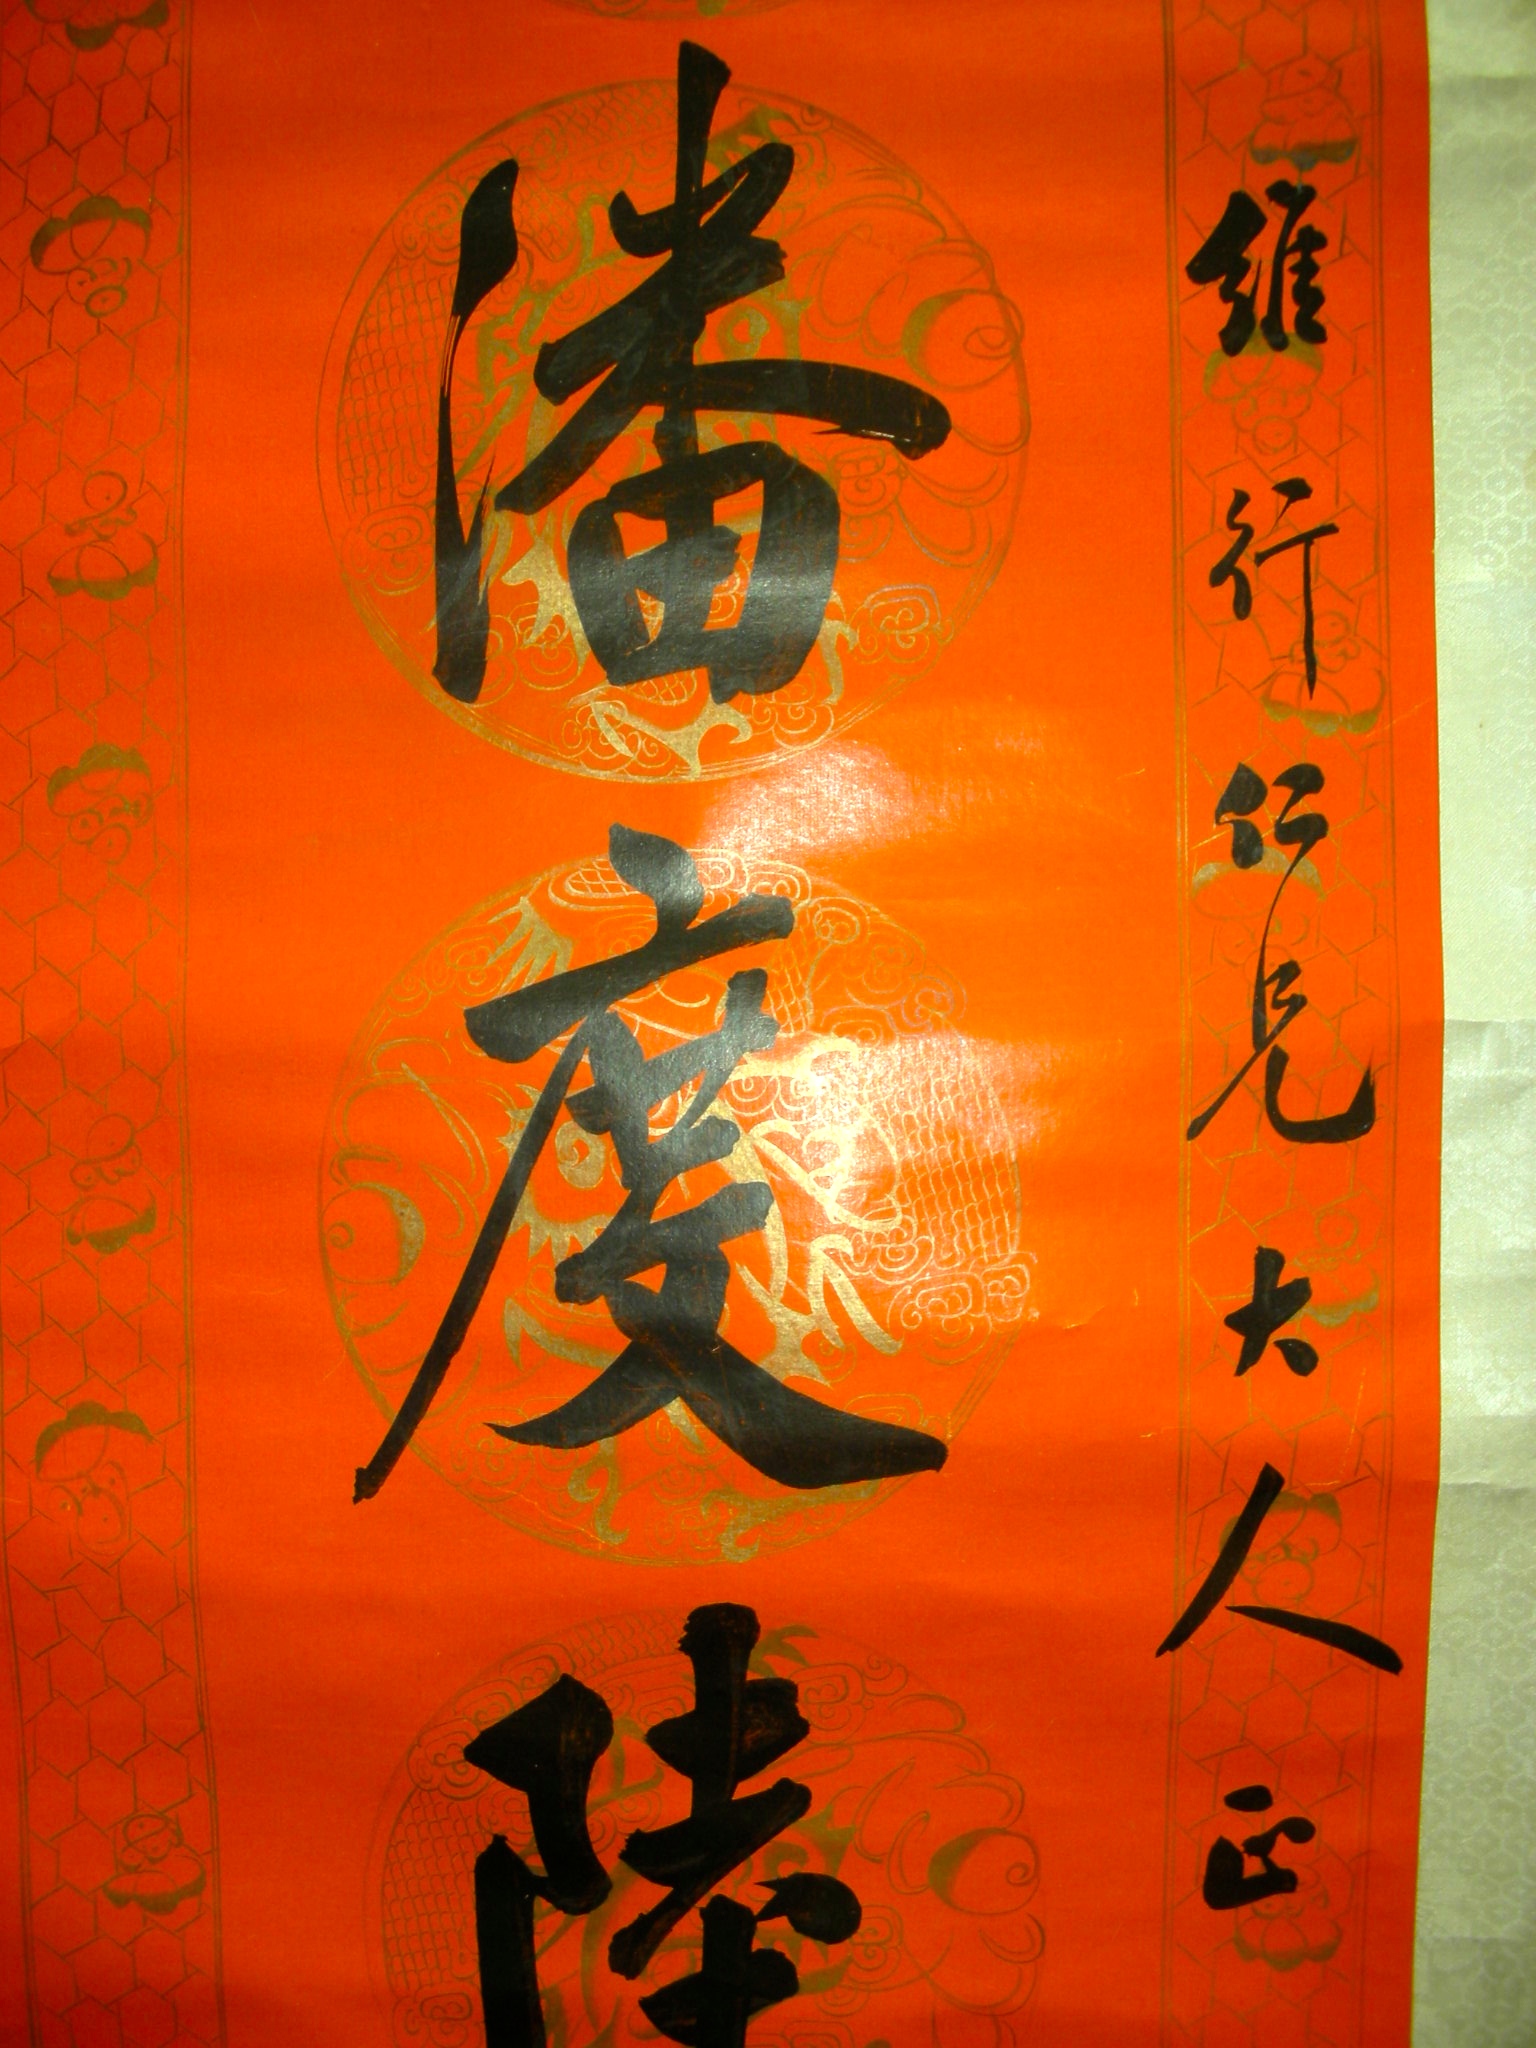 維行仁兄大人正
潘度陸